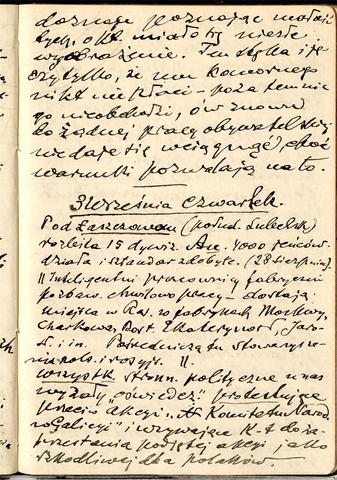 doznaje poznając młodzież
tych, o kt. miało się niesłe
wyobrażenie. Ten utyka i je
czytylko, że mu komornego
nikt nie płaci – poza tem nic
go nie obchodzi, ów znowu
do żadnej pracy obywatelskiej
nie daje się wciągnąć, choć
warunki pozwalają na to.
3 Września Czwartek.
Pod Łaszczowem (połud. Lubelsk)
rozbita 15 dywiz. Au. 4000 jeńców
działa i sztandar zdobyte. (28 sierpnia).
"Inteligentni pracownicy fabryczni
pozbaw. chwilowo pracy – dostają
miejsca w Ros. w fabrykach Moskwy,
Charkowa, Rost. Ekaterynosł., Jaro-
sł. i in. Pośredniczą tu stowarzysze-
nia pols. i rosyjs. ".
Wszystk. stronn. polityczne u nas
wydały "odwiedź" protestujące
przeciw akcyi "N. Komitetu Narod.
w Galicyi" i wzywające K-t do za-
przestania podjętej akcyi jako
szkodliwej dla polaków.